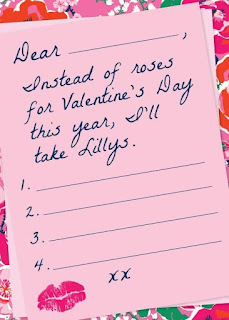 Dear ____________,
Instead of roses
for Valentine's Day
this year, I'll
take Lillys.
1. ____________
2. ____________
3. ____________
4. ____________
xx